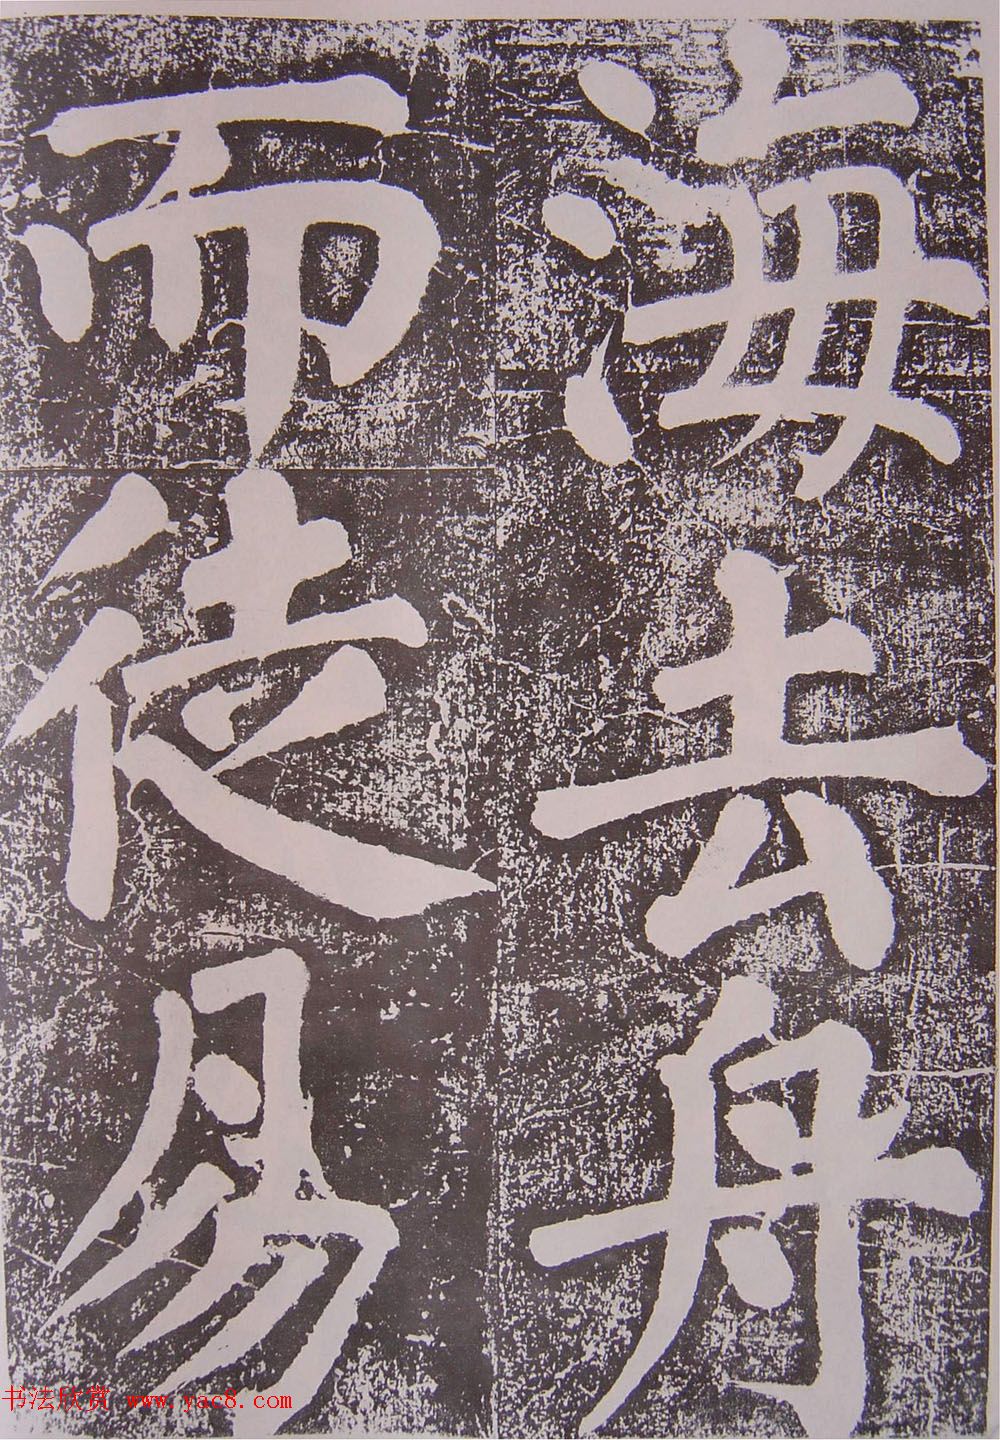 海去舟
而徒易
书法欣赏 www.yac8.com